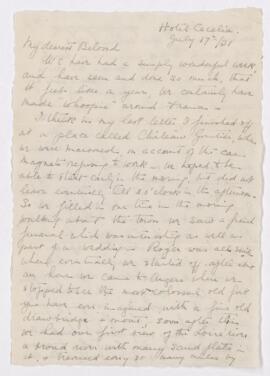 Hotel Cecilia.
July 17th /31
My dearest Beloved
We have had a simply wonderful week
and have seen and done so much, that
it feels like a year, we certainly have
made "whoopee" around France.
I think in my last letter I finished off
at a place called
where we were marooned, on account of the car
magneto refusing to work. We hoped to be
able to start early in the morning, but did not
leave eventually, till 2 o'clock in the afternoon.
So we filled in our time in the morning
about the town. We saw a
funeral which was interesting as well as
part of a wedding. Roger was
when eventually, we started off, after
an hour we came to Angers where we
stopped to see the most colossal old fort
you have ever imagined, with a fine old
drawbridge & moat. Soon after this
we had our first view of the Loire river
a broad river with many sand flats in
it, & traversed early so many miles by